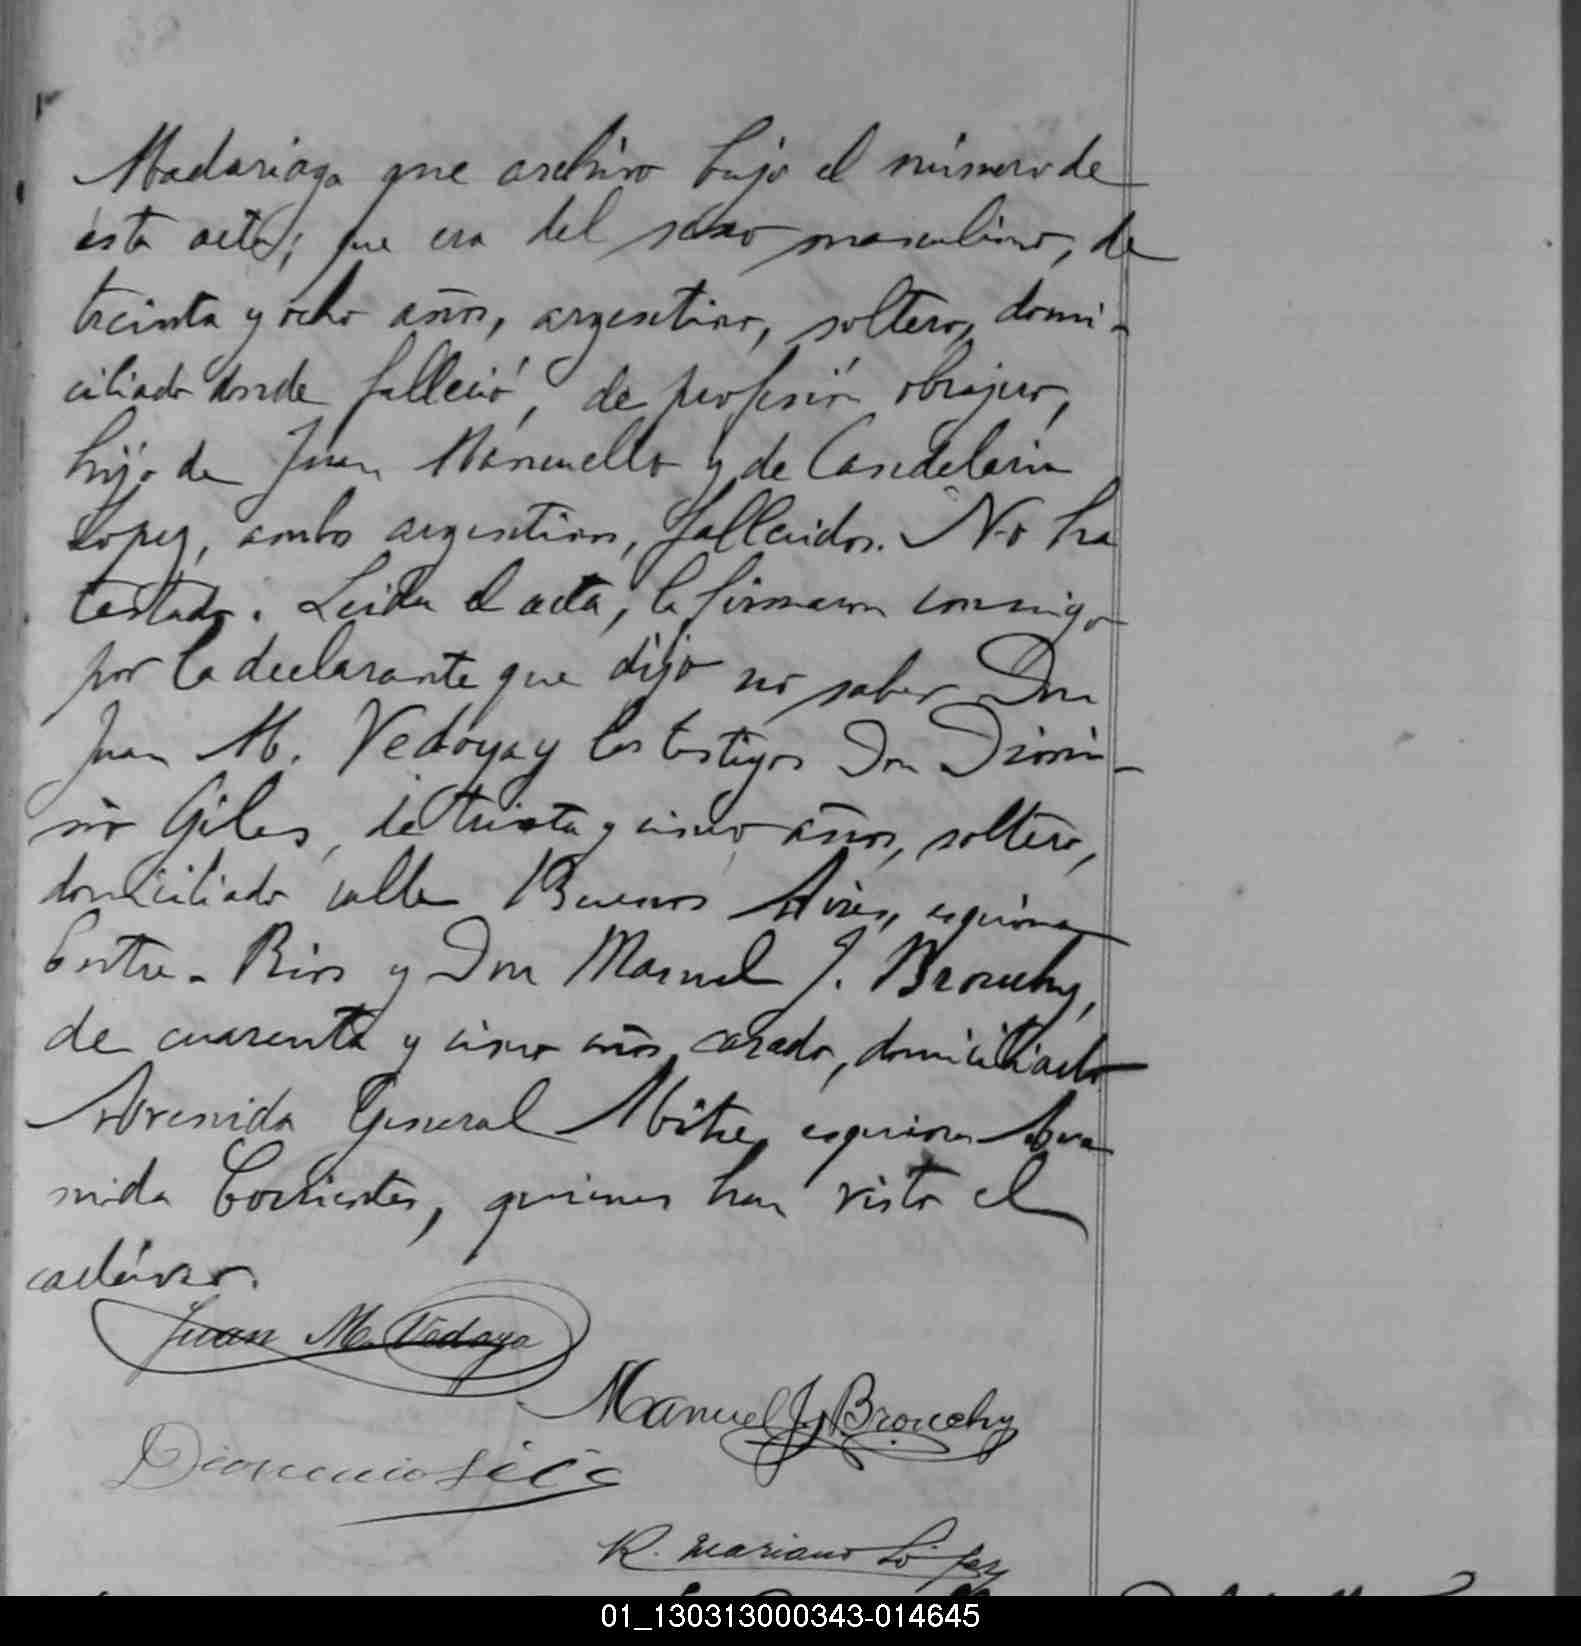 Madariaga que archivo bajo el número de
ésta acta; que era del sexo masculino, de
treinta y ocho años, argentino, soltero, domi-
ciliado donde falleció, de profesión obrajero,
hijo de Juan Mansuello y de Candelaria
Lopez, ambos argentinos, fallecidos. No ha
testado. Leida el acta, la firmaron conmigo
por la declarante que dijo no saber Don
Juan M. Vedoya y los testigos Don Dioni-
sio Giles, de treinta y cinco años, soltero,
domiciliado calle Buenos Aires, esquina
Entre-Rios y Don Manuel J. Brouchy,
de cuarenta y cinco años, casado, domiciliado
Avenida General Mitre, esquina Ave-
nida Corrientes, quienes han visto el
cadáver.
Juan M. Vedoya
Manuel J. Brouchy
Dionicio
R. Mariano López
01_130313000343-014645